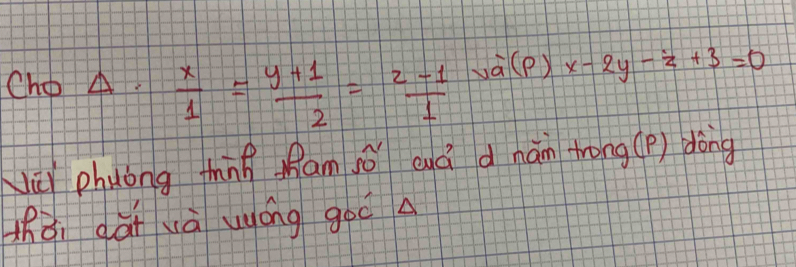 Cho Δ : x/1 = y+1/2 = z-1/1 và (P) x - 2y - z + 3 = 0
Viết phương trình tham số cuả d nằm trong (P) đồng
thời cắt và vuông góc Δ